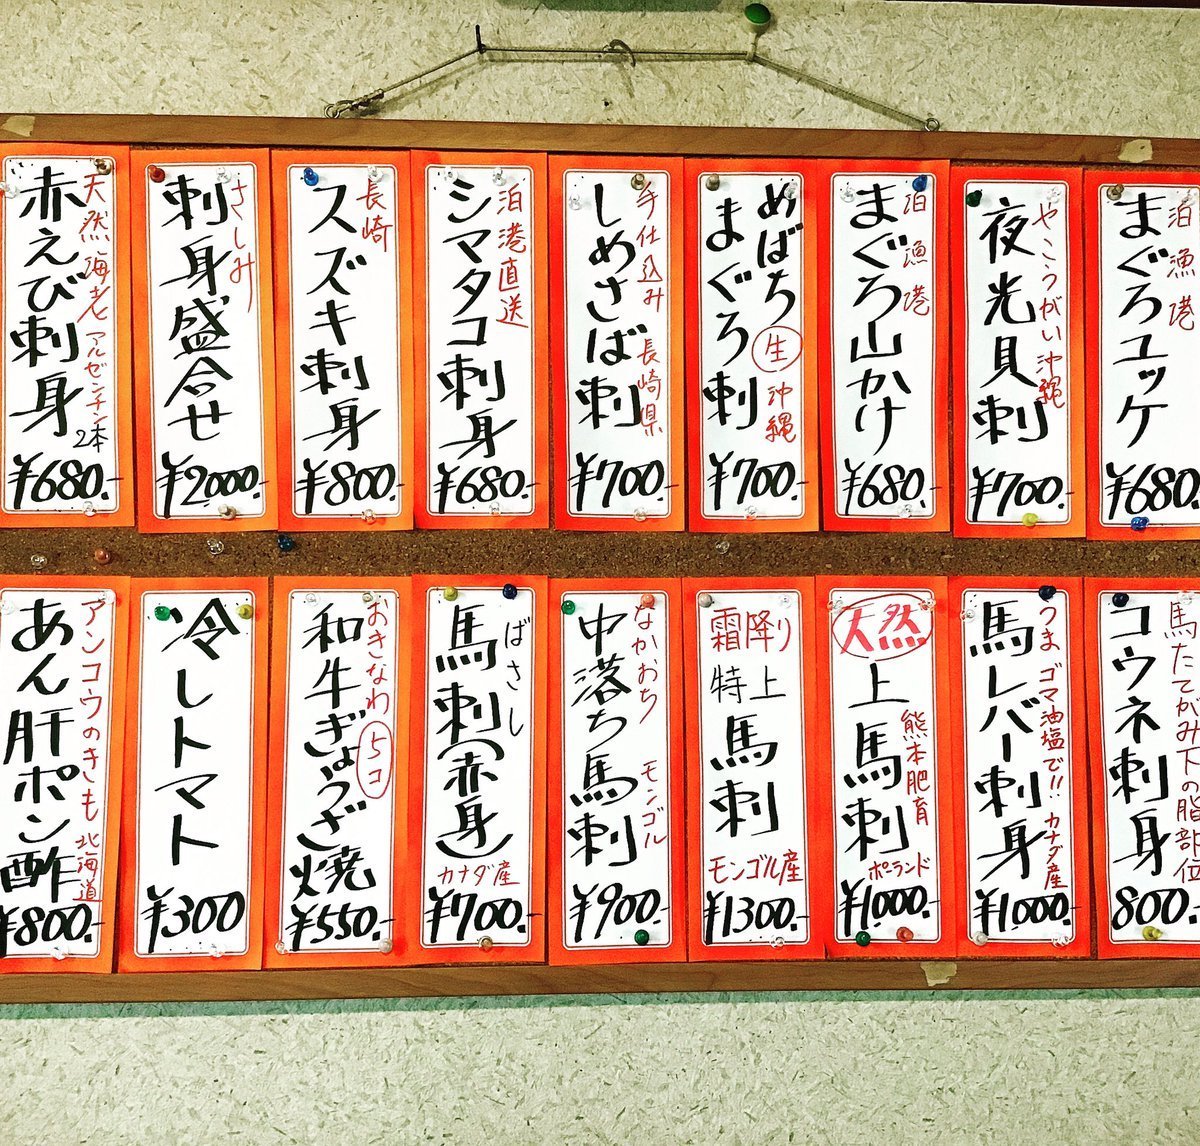 まぐろユッケ
泊漁港
¥680.-
夜光貝刺
やこうがい沖縄
¥700.-
まぐろ山かけ
泊漁港
¥680.-
めばち
まぐろ刺
生
沖縄
¥700.-
しめさば刺
手仕込み長崎県
¥700.-
シマタコ刺身
泊港直送
¥680.-
スズキ刺身
長崎
¥800.-
刺身盛合せ
さしみ
¥2000.-
赤えび刺身
天然海老アルゼンチン
2本
¥680.-
コウネ刺身
馬たてがみ下の脂部位
800.-
馬レバー刺身
うまゴマ油塩で!!カナダ産
¥1000.-
天然
上馬刺
熊本肥育
ポーランド
¥1000.-
霜降り
特上
馬刺
モンゴル産
¥1300.-
中落ち馬刺
なかおち
モンゴル
¥900.-
馬刺(赤身)
ばさし
カナダ産
¥700.-
和牛ぎょうざ焼
おきなわ
5コ
¥550.-
冷しトマト
¥300
あん肝ポン酢
アンコウのきも北海道
¥800.-